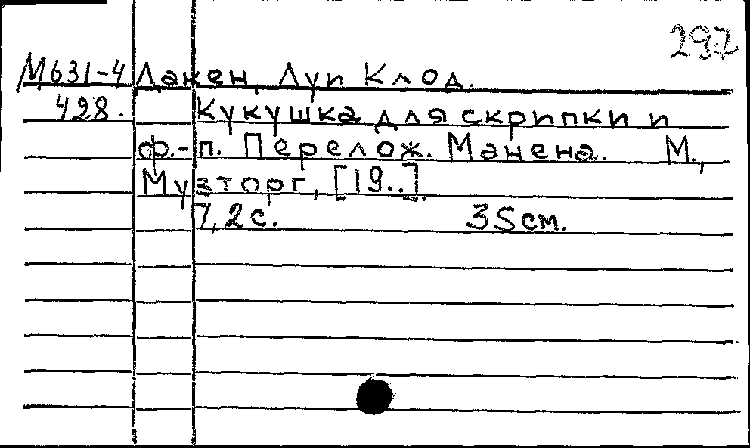 297
М631-4 Дакен, Луи Клод.
428. Кукушка для скрипки и
ф.-п. Перелож. Манена. М.,
Музторг, [19..].
7,2 с. 35 см.